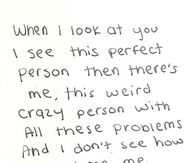 When I look at you
I see this perfect
person then there's
me, this weird
crazy person with
All these problems
And I don't see how
me